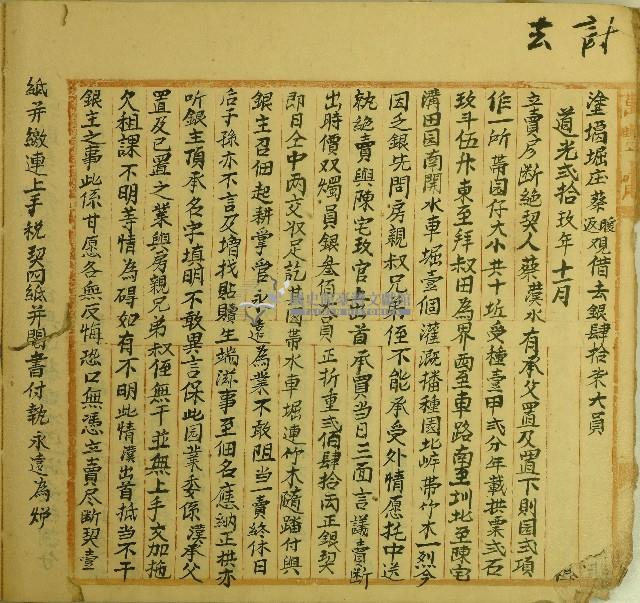 計
去
塗塭堀庄蔡暖返艰借去銀肆拾柒大員
道光貳拾玖年十一月
立賣尽断絶契人蔡濮水有承父置及置下則园弍項
作一所帶园仔大小共十坵受種壹甲弍分年載拱粟弍石
玖斗伍升東至拜叔田為界西至車路南至圳北至陳宅
溝田园南関水車堀壹個灌溉播種园北岸帶竹木一烈今
因乏銀先問房親叔兄弟侄不能承受外情愿托中送
就絶賣與陳宅玫官上出首承買当日三面言議賣断
出時價双燭員銀叁佰員正折重弍佰肆拾両正銀契
即日仝中両交收足訖其园帶水車堀連竹木隨踏付與
銀主召佃起耕掌管永遠為業不敢阻当一賣終休日
后子孫亦不言及增找貼贖生端滋事至佃名應納正拱亦
听銀主頂承名字填明不敢異言保此园業委係濮承父
置及已置之業與房親兄弟叔侄無干並無上手交加拖
欠租課不明等情為碍如有不明此情濮出首抵当不干
銀主之事此係甘愿各無反悔恐口無憑立賣尽断契壹
紙并繳連上手税契四紙并鬮書付執永遠為炉